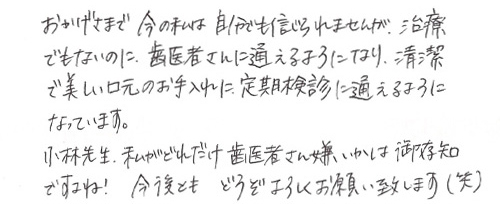 おかげさまで 今の私は 自分でも信じられませんが、治療
でもないのに、歯医者さんに通えるようになり、清潔
で美しい口元のお手入れに、定期検診に通えるように
なっています。
小林先生、私がどれだけ歯医者さん嫌いかは 御存知
ですよね! 今後とも どうぞよろしくお願い致します(笑)